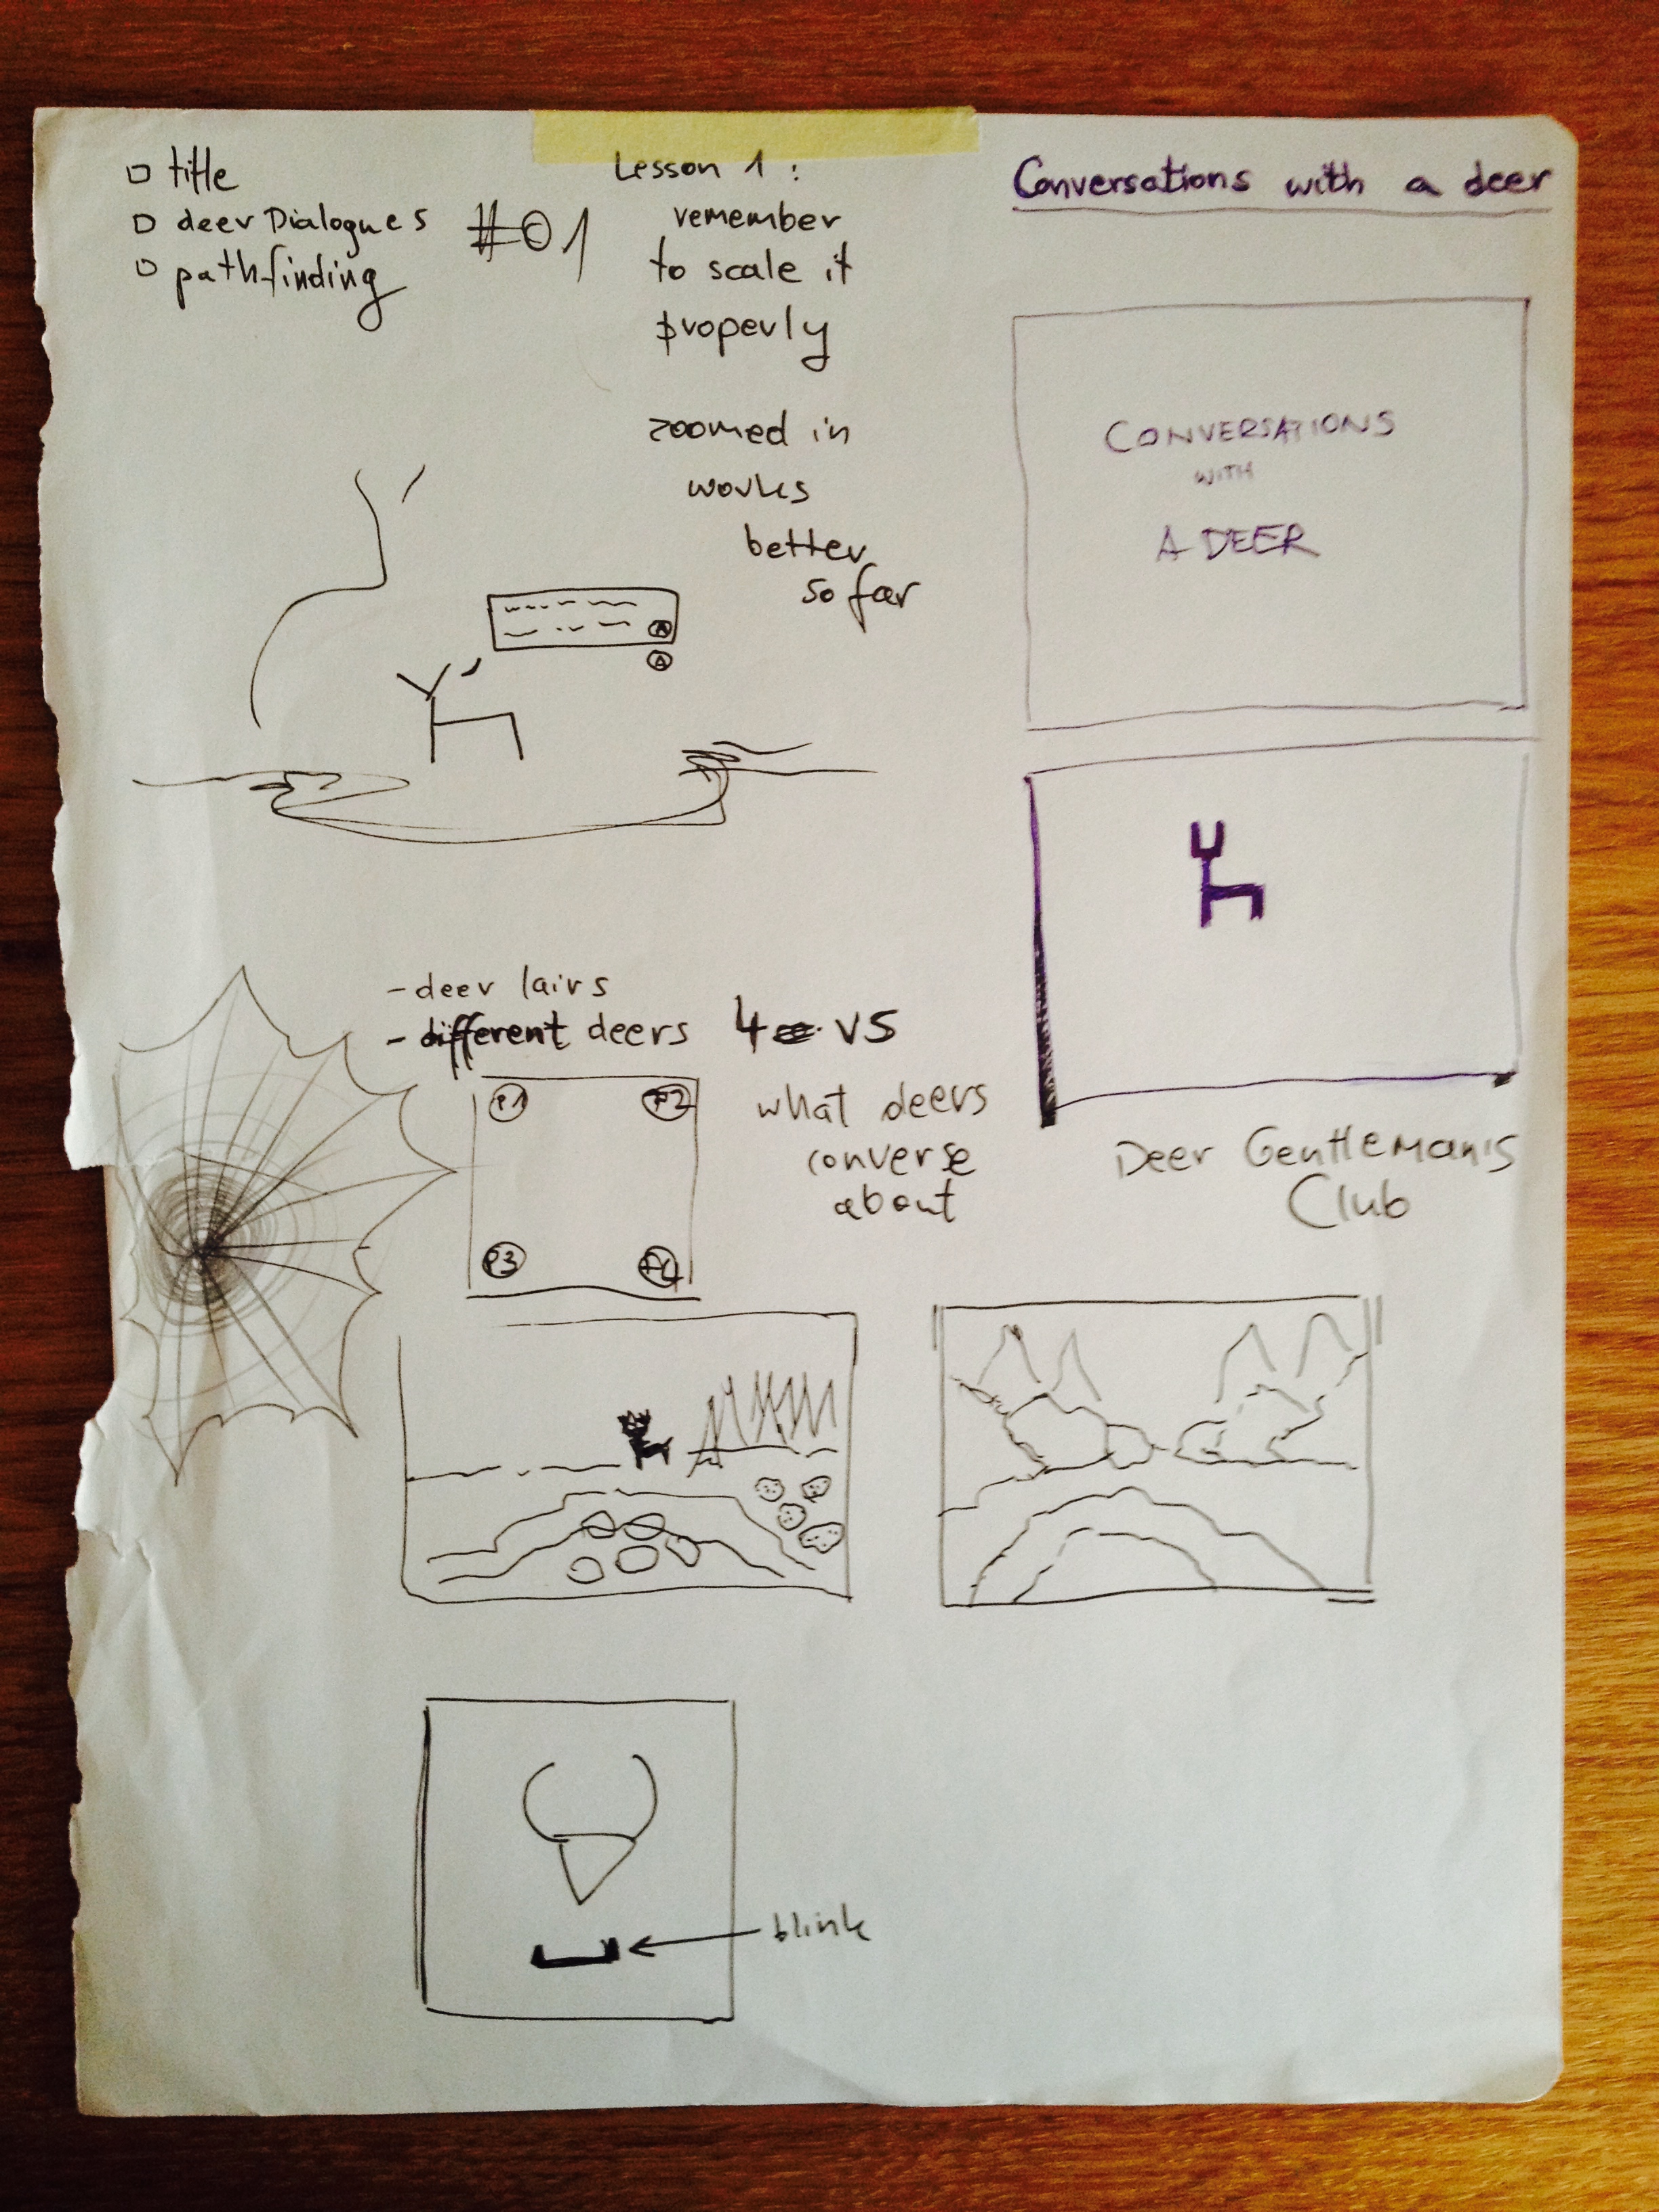 □ title
□ deer Dialogues
□ pathfinding
#01
Lesson 1:
remember
to scale it
properly
zoomed in
works
better
so far
A
A
Conversations with a deer
CONVERSATIONS
WITH
A DEER
- deer lairs
- different deers 4 VS
P1 P2
P3 P4
what deers
converse
about
Deer Gentleman's
Club
blink